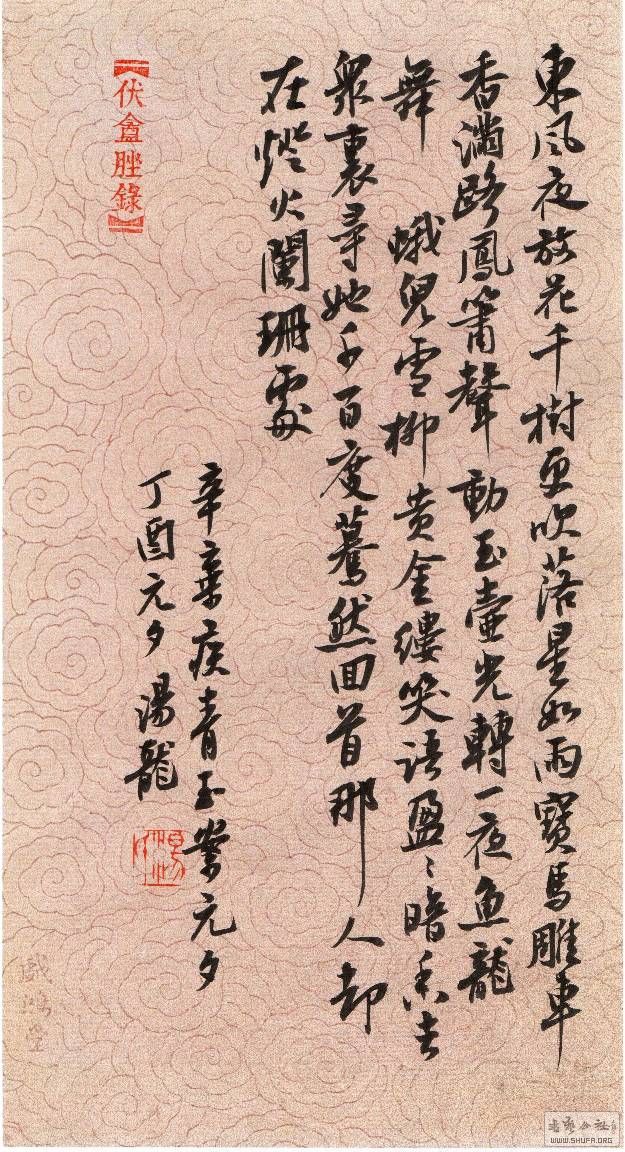 東風夜放花千樹更吹落星如雨寶馬雕車
香滿路鳳簫聲動玉壺光轉一夜魚龍
舞 蛾兒雪柳黃金縷笑語盈〻暗香去
衆裏尋她千百度驀然回首那人却
在燈火闌珊處
辛棄疾青玉案元夕
丁酉元夕湯龍
伏盦脞錄
WWW.SHUFA.ORG